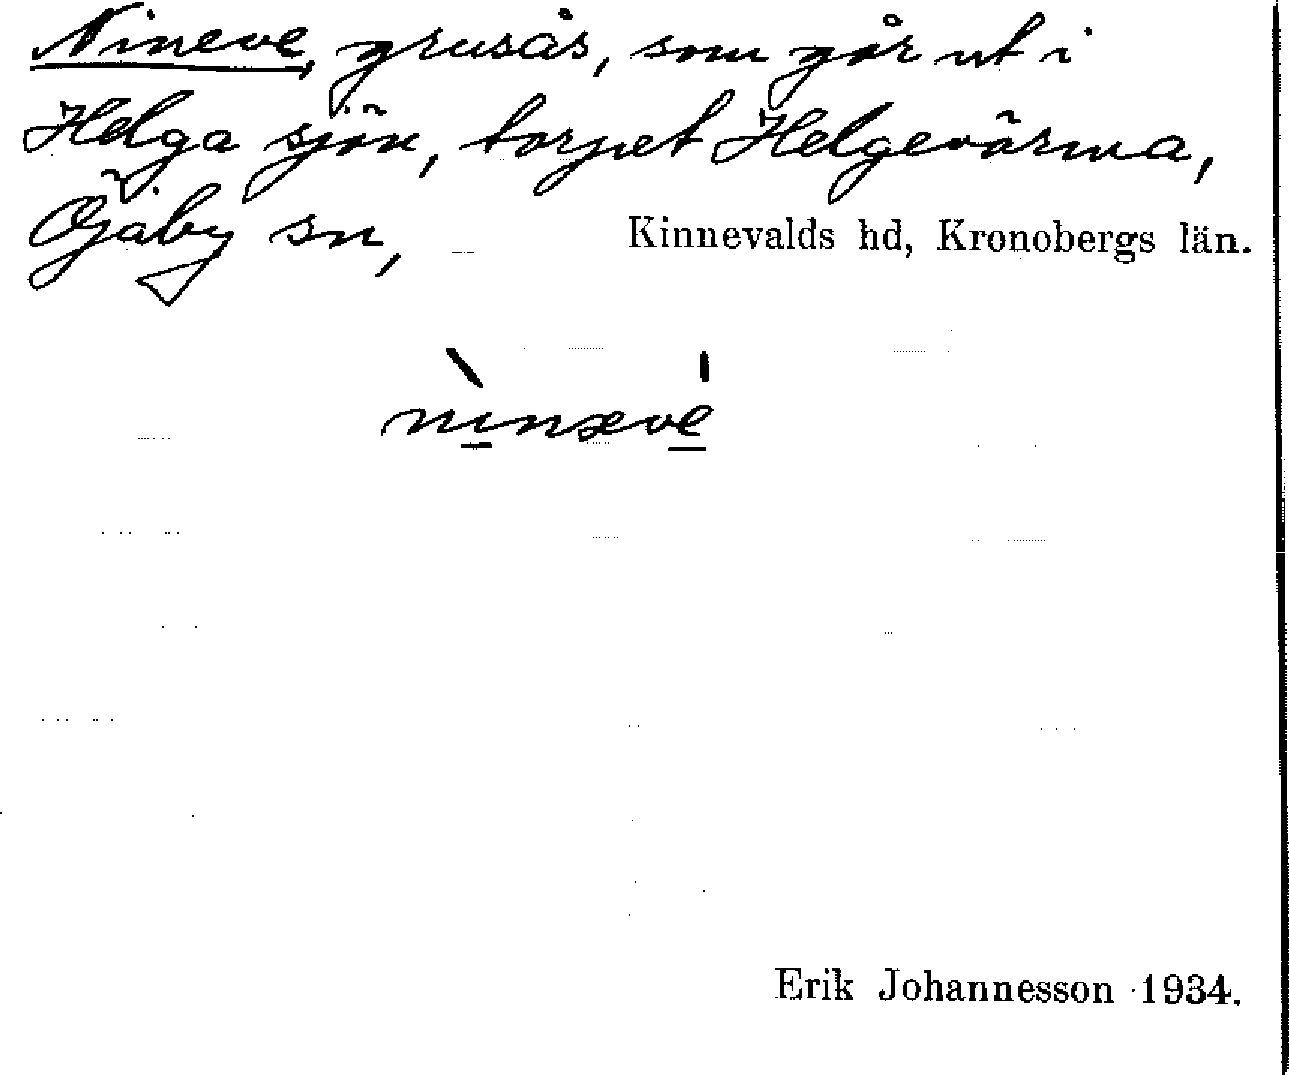 Nineve, grusås, som går ut i
Helga sjön, torpet Helgevärma,
Öjaby sn, Kinnevalds hd, Kronobergs län.
nìnævé
Erik Johannesson 1934.